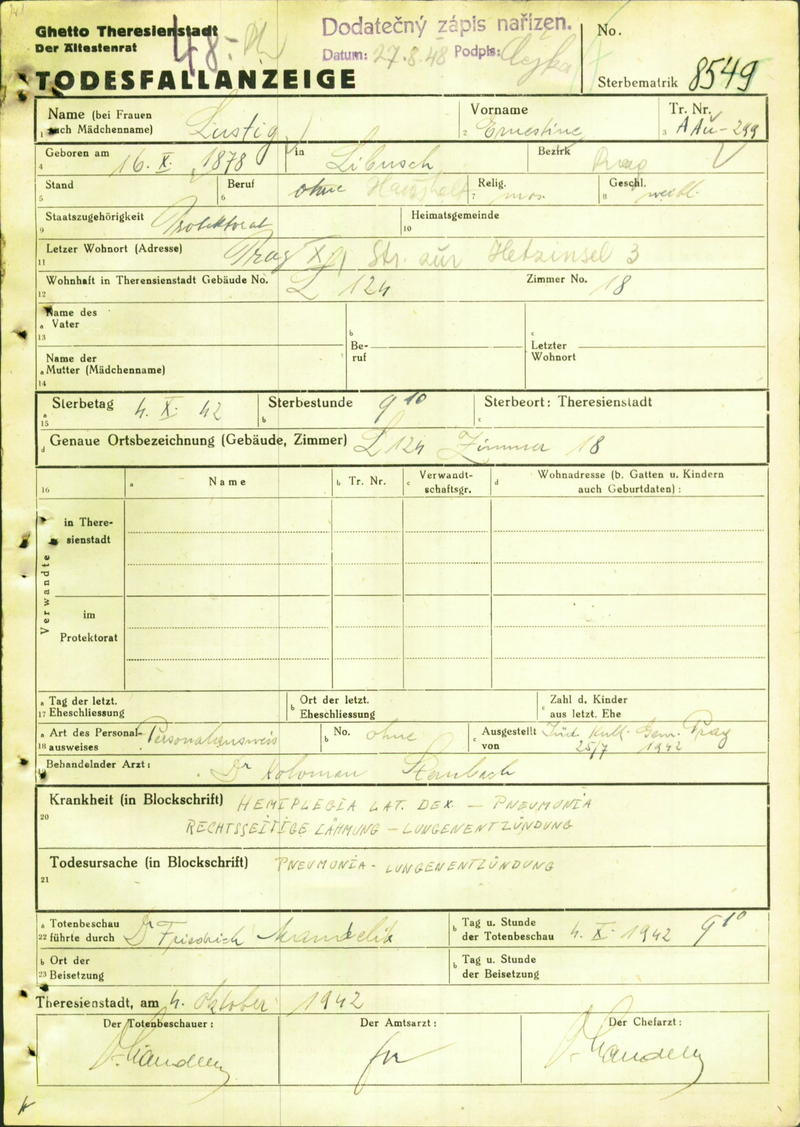 Ghetto Theresienstadt
Der Ältestenrat
48-
Dodatečný zápis nařízen.
Datum: 27.8.48 Podpis:
TODESFALLANZEIGE
No.
Sterbematrik 8549
Name (bei Frauen auch Mädchenname) Lustig
Vorname Ernestine
Tr. Nr. AAu-299
1 2 3
Geboren am 16. X. 1878 in Libusch Bezirk Prag
4
Stand Beruf ohne Haushalt Relig. mos. Geschl. weibl.
5 6 7 8
Staatszugehörigkeit Protektorat Heimatsgemeinde
9 10
Letzer Wohnort (Adresse) Prag XI Str. zur Hetzinsel 3
11
Wohnhaft in Theresienstadt Gebäude No. L 124 Zimmer No. 18
12
Name des
a Vater
13
b
Be-
ruf
c
Letzter
Wohnort
Name der
a Mutter (Mädchenname)
14
a Sterbetag 4. X. 42 b Sterbestunde 9 10 c Sterbeort: Theresienstadt
15
d Genaue Ortsbezeichnung (Gebäude, Zimmer) L 124 Zimmer 18
16 a Name b Tr. Nr. c Verwandt-
schaftsgr. d Wohnadresse (b. Gatten u. Kindern
auch Geburtdaten) :
Verwandte
in There-
sienstadt
im
Protektorat
a Tag der letzt.
17 Eheschliessung
b Ort der letzt.
Eheschliessung
c Zahl d. Kinder
aus letzt. Ehe
a Art des Personal-
18 ausweises Personalausweis
b No. ohne
c Ausgestellt
von Jüd. Kult. Gem. Prag
25/7 1942
Behandelnder Arzt: Dr Koloman Steinbach
Krankheit (in Blockschrift) HEMIPLEGIA LAT. DEX. – PNEUMONIA
20
RECHTSSEITIGE LÄHMUNG – LUNGENENTZÜNDUNG
Todesursache (in Blockschrift) PNEUMONIA - LUNGENENTZÜNDUNG
21
a Totenbeschau
22 führte durch Dr Friedrich Mandelik
b Tag u. Stunde
der Totenbeschau 4. X. 1942 9 10
b Ort der
23 Beisetzung
b Tag u. Stunde
der Beisetzung
Theresienstadt, am 4. Oktober 1942
Der Totenbeschauer : Der Amtsarzt : Der Chefarzt :